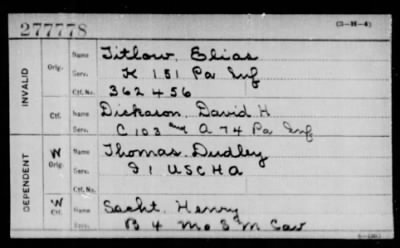 277778
(3-H-4)
INVALID
Orig.
Name Titlow, Elias
Serv. K 151 Pa Inf
Ctf. No. 362456
Ctf.
Name Dickason, David H
Serv. C 103 and A 74 Pa Inf
DEPENDENT
W
Orig.
Name Thomas, Dudley
Serv. I 1 USCHA
Ctf. No.
W
Ctf.
Name Sacht, Henry
Serv. B 4 Mo S M Cav